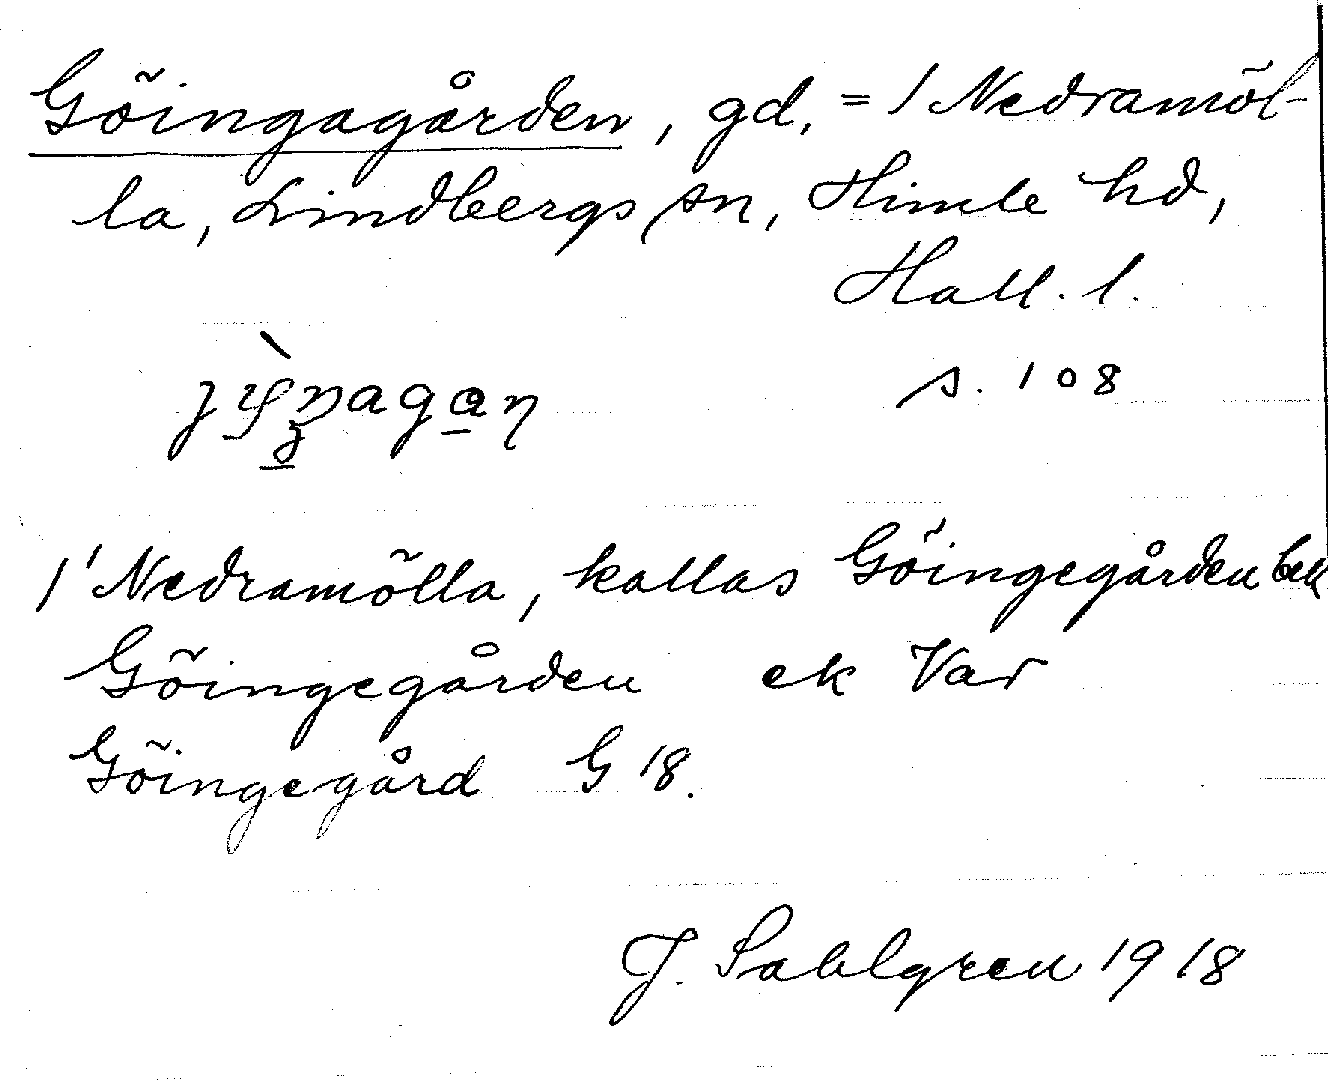 Göingagården, gd, = 1 Nedramöl-
la, Lindbergs sn, Himle hd,
Hall. l.
s. 108
1¹ Nedramölla, kallas Göingegården bell
Göingegården ek Var
Göingegård G 18.
J. Sahlgren 1918